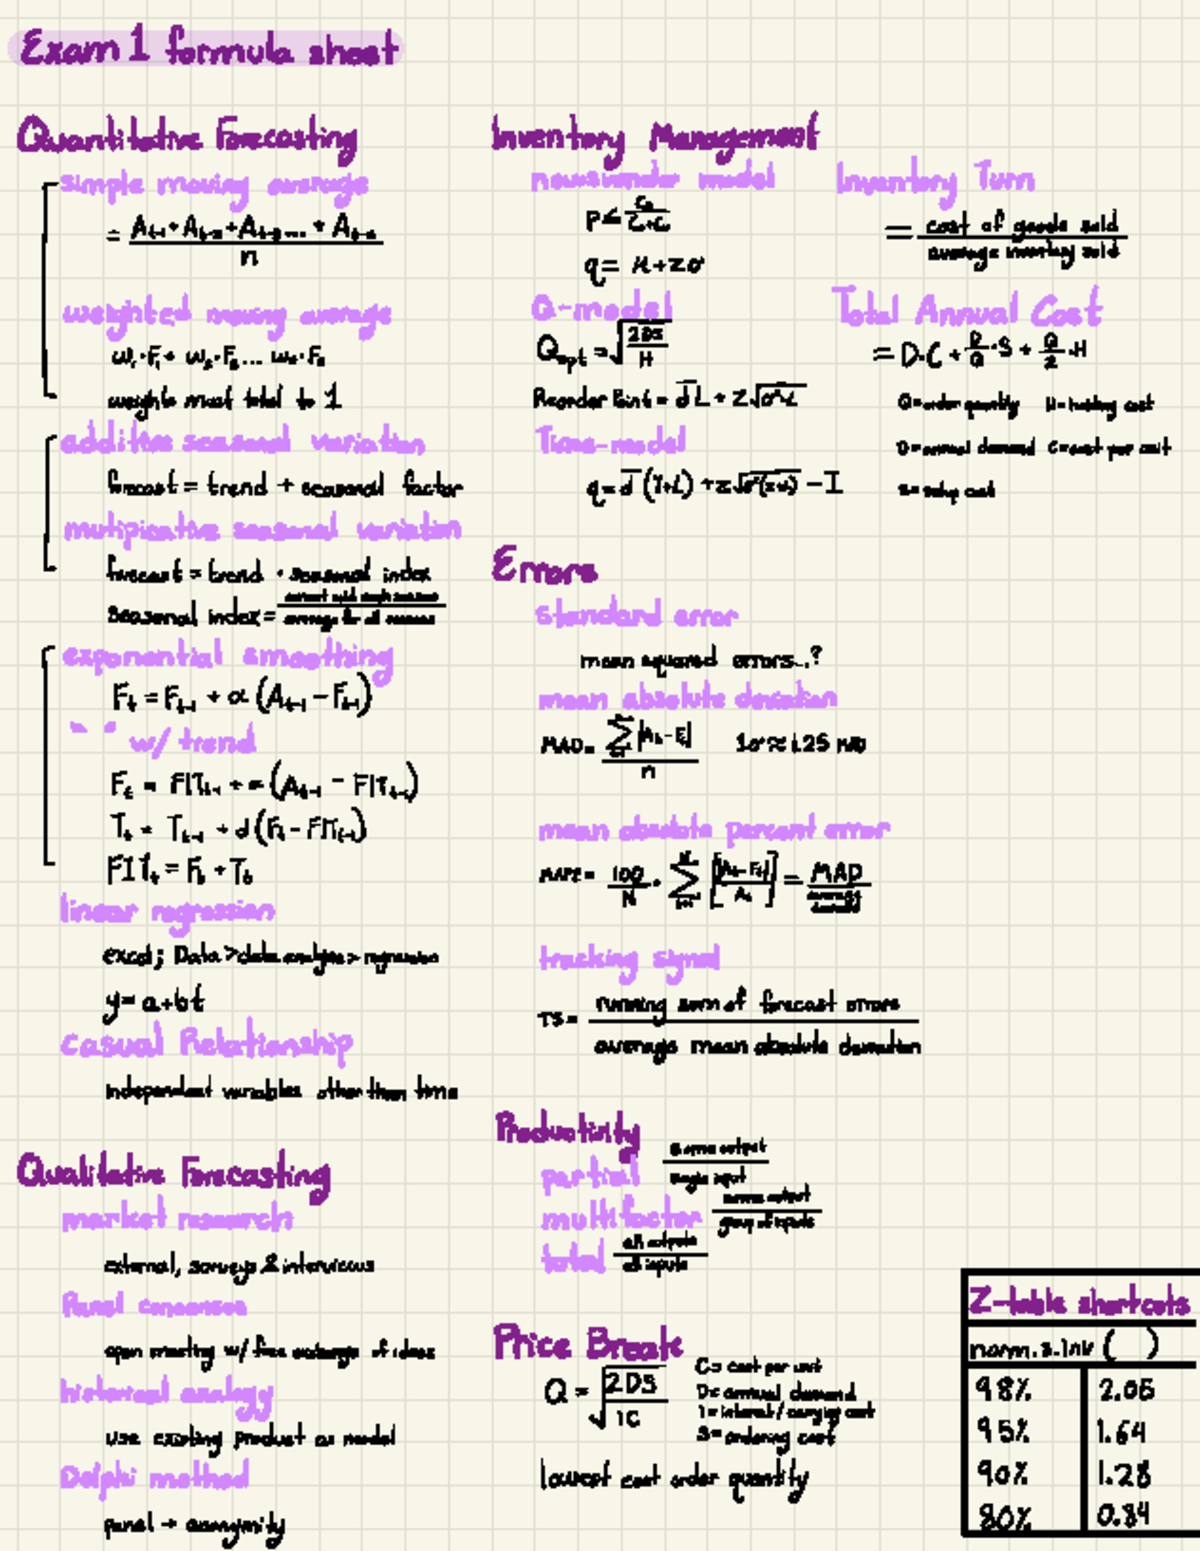 Exam 1 formula sheet
Quantitative Forecasting
simple moving average
= A_{t-1} + A_{t-2} + A_{t-3} ... + A_{t-n} / n
weighted moving average
w₁·F₁ + w₂·F₂ ... wₙ·Fₙ
weights must total to 1
additive seasonal variation
forecast = trend + seasonal factor
multiplicative seasonal variation
forecast = trend · seasonal index
seasonal index = / average for all seasons
exponential smoothing
F_t = F_{t-1} + α (A_{t-1} - F_{t-1})
" " w/ trend
F_t = FIT_{t-1} + α (A_{t-1} - FIT_{t-1})
T_t = T_{t-1} + d (F_t - FIT_{t-1})
FIT_t = F_t + T_t
linear regression
excel; Data > data analysis > regression
y = a + bt
Casual Relationship
independent variables other than time
Qualitative Forecasting
market research
external, surveys & interviews
Panel consensus
open meeting w/ free exchange of ideas
historical analogy
use existing product as model
Delphi method
panel → anonymity
Inventory Management
newsvendor model
P ≤ Cu / Co+Cu
q = μ + zσ
Q-model
Q_opt = √(2DS / H)
Reorder Point = d̄L + z√σ²L
Time-model
q = d̄ (T+L) + z√ - I
Inventory Turn
= cost of goods sold / average inventory sold
Total Annual Cost
= D·C + D/Q · S + Q/2 · H
Q = order quantity H = holding cost
D = annual demand C = cost per unit
S = setup cost
Errors
standard error
mean squared errors..?
mean absolute deviation
MAD = Σ |A_t - F_t| / n 1σ ≈ 1.25 MAD
mean absolute percent error
MAPE = 100/N · Σ [|A_t - F_t| / A_t] = MAD / average demand
tracking signal
TS = running sum of forecast errors / average mean absolute deviation
Productivity
partial output / single input
multifactor output / group of inputs
total all outputs / all inputs
Price Break
Q = √(2DS / IC)
C = cost per unit
D = annual demand
I = interest / carrying cost
S = ordering cost
lowest cost order quantity
Z-table shortcuts
norm.s.inv ( )
98% 2.05
95% 1.64
90% 1.28
80% 0.84